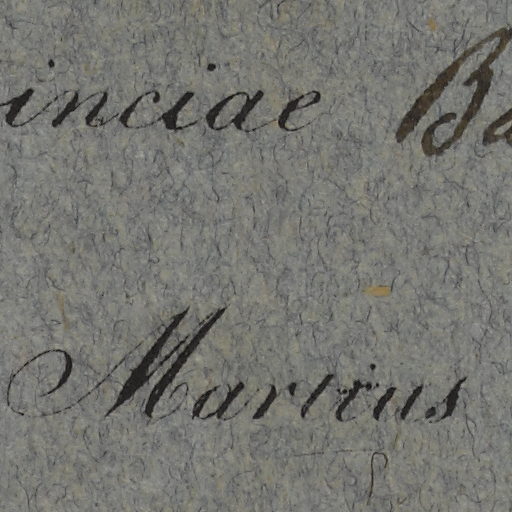 inciae Ba
Maritus